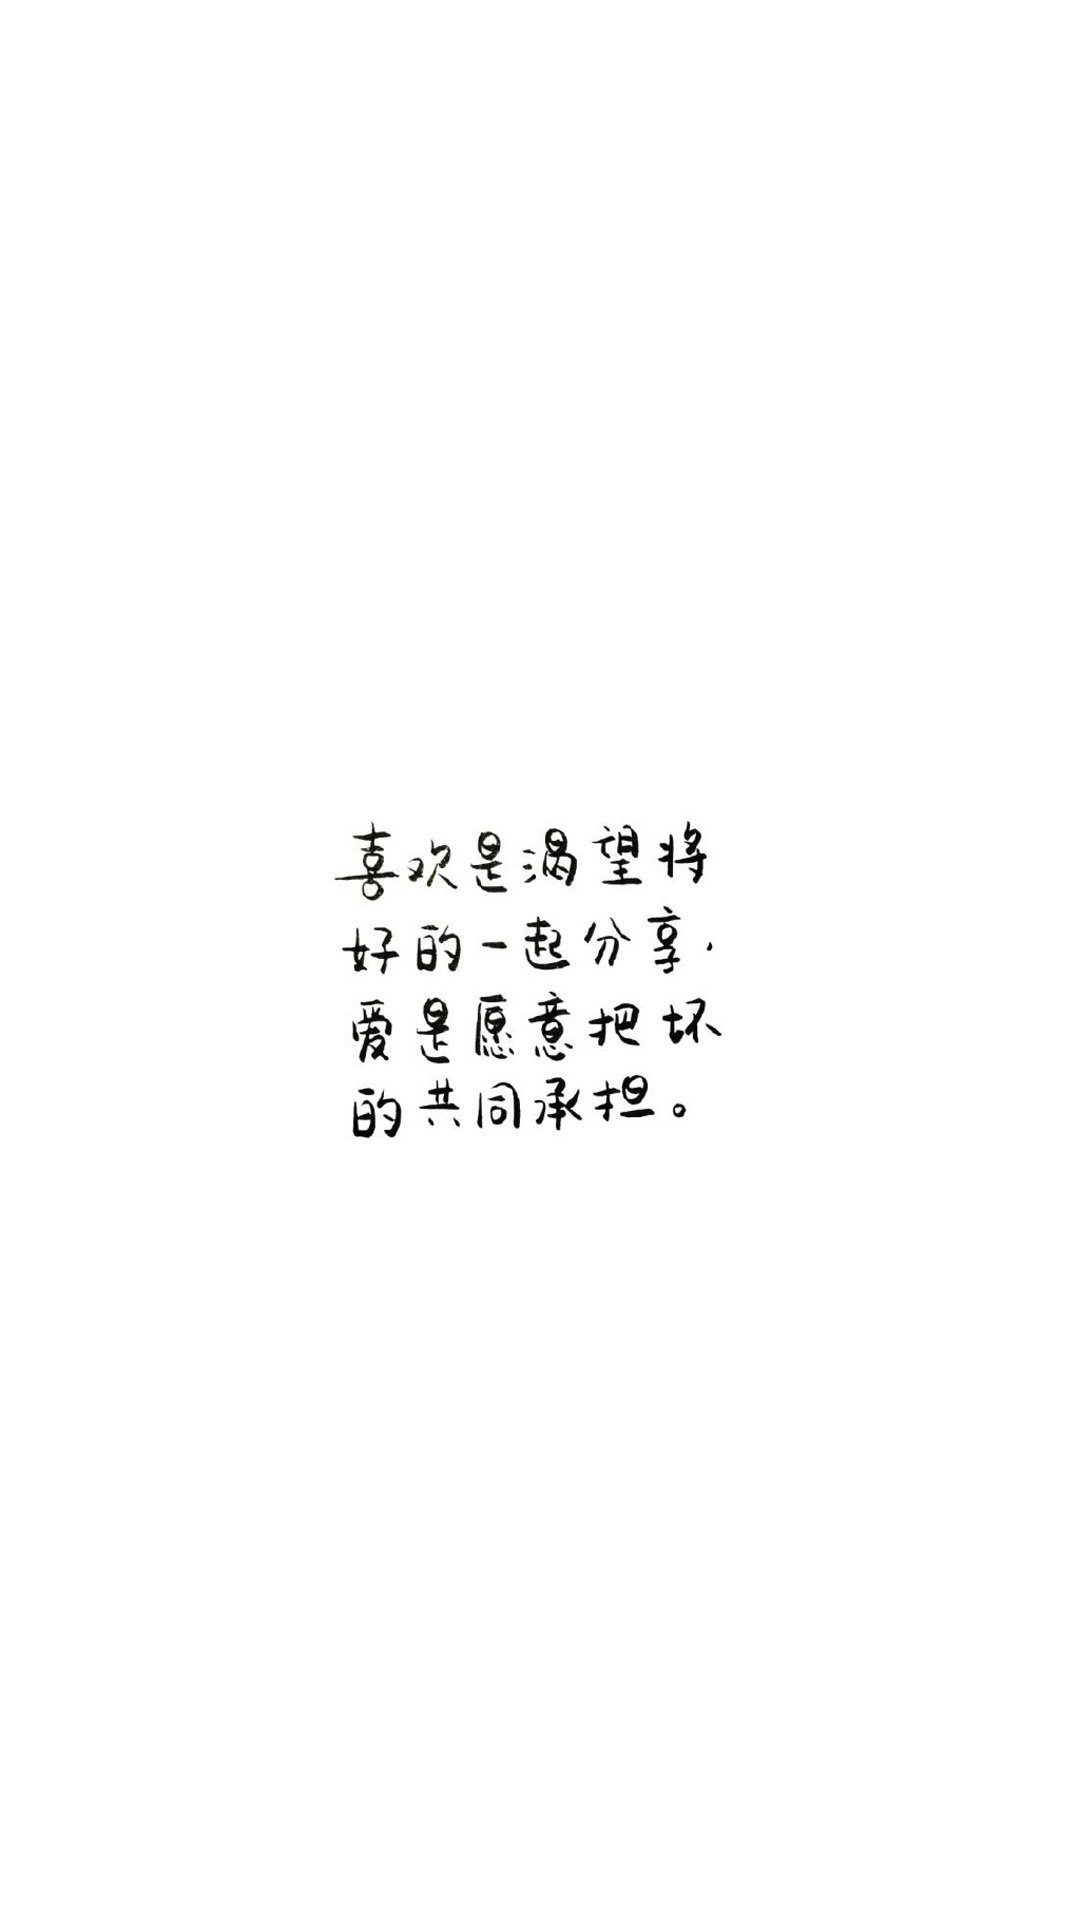 喜欢是渴望将
好的一起分享，
爱是愿意把坏
的共同承担。